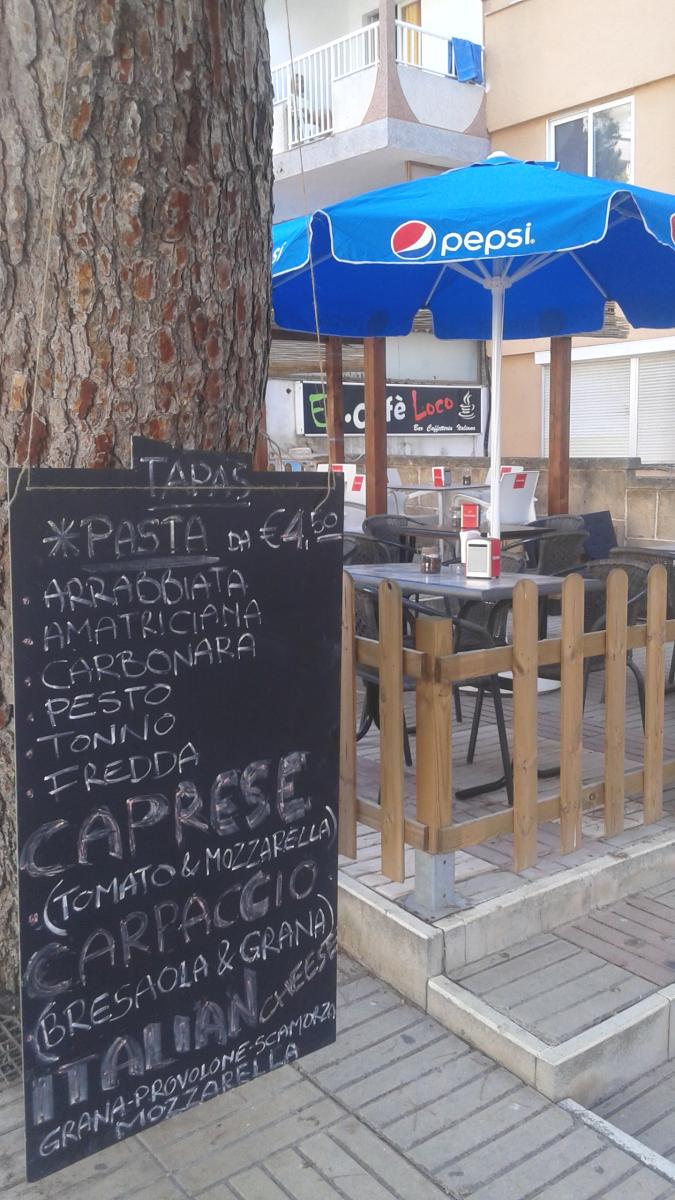 pepsi
Cafè Loco
Bar Caffetteria Italiana
TAPAS
*PASTA DA €4,50
ARRABBIATA
AMATRICIANA
CARBONARA
PESTO
TONNO
FREDDA
CAPRESE
(TOMATO & MOZZARELLA)
CARPACCIO
(BRESAOLA & GRANA)
ITALIAN CHEESE
GRANA-PROVOLONE-SCAMORZA
MOZZARELLA